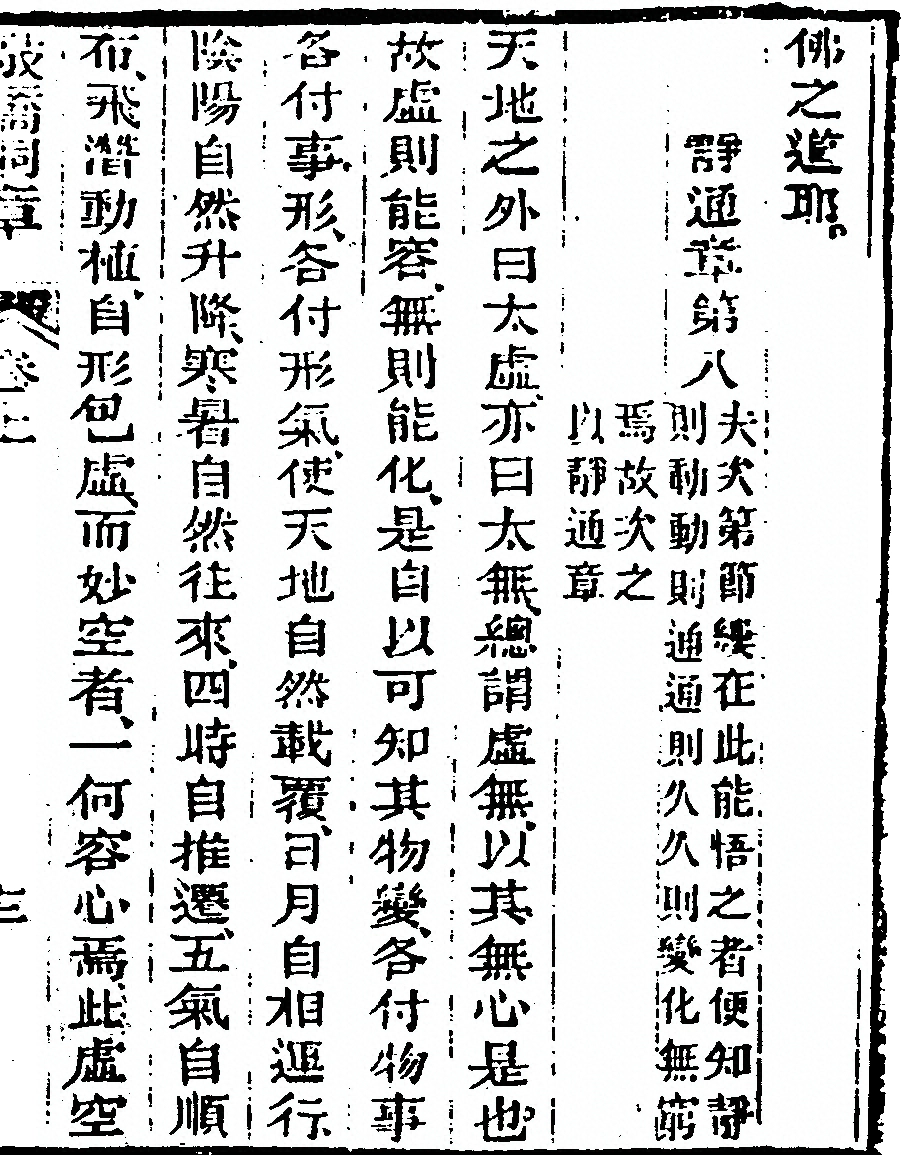 佛之道耶。
靜通章第八
夫次第節縷在此能悟之者便知靜
則動動則通通則久久則變化無窮
焉故次之
以靜通章
天地之外曰太虛、亦曰太無、總謂虛無、以其無心是也。
故虛則能容、無則能化、是自以可知其物變、各付物事
各付事、形、各付形氣、使天地自然載覆、日月自相運行、
陰陽自然升降、寒暑自然往來、四時自推遷、五氣自順
布、飛潛動植、自形包虛、而妙空者、一何容心焉、此虛空
敲爻洞章
卷上
三